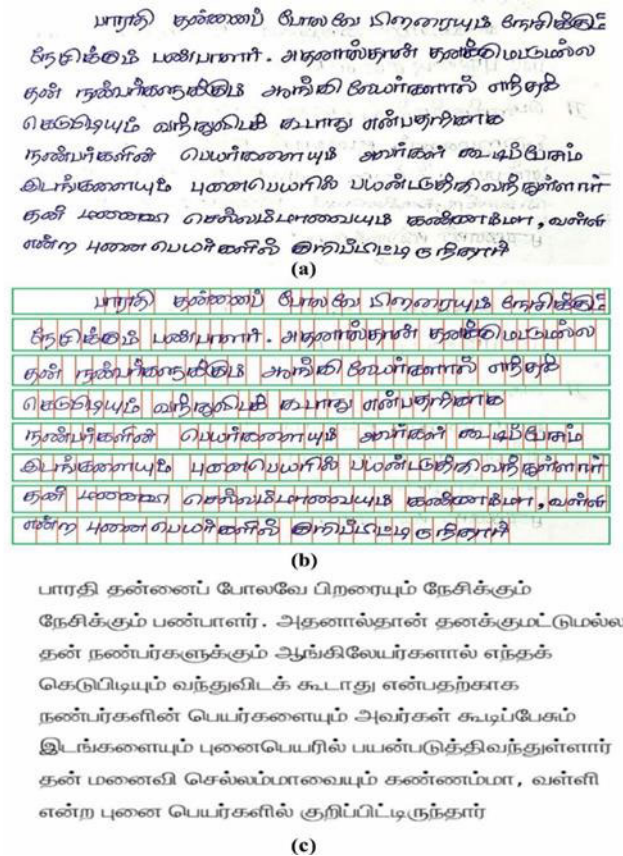 பாரதி தன்னைப் போலவே பிறரையும் நேசிக்கும்
நேசிக்கும் பண்பாளர். அதனால்தான் தனக்குமட்டுமல்ல
தன் நண்பர்களுக்கும் ஆங்கிலேயர்களால் எந்தக்
கெடுபிடியும் வந்துவிடக் கூடாது என்பதற்காக
நண்பர்களின் பெயர்களையும் அவர்கள் கூடிப்பேசும்
இடங்களையும் புனைபெயரில் பயன்படுத்திவந்துள்ளார்
தன் மனைவி செல்லம்மாவையும் கண்ணம்மா, வள்ளி
என்ற புனை பெயர்களில் குறிப்பிட்டிருந்தார்
(a)
பாரதி தன்னைப் போலவே பிறரையும் நேசிக்கும்
நேசிக்கும் பண்பாளர். அதனால்தான் தனக்குமட்டுமல்ல
தன் நண்பர்களுக்கும் ஆங்கிலேயர்களால் எந்தக்
கெடுபிடியும் வந்துவிடக் கூடாது என்பதற்காக
நண்பர்களின் பெயர்களையும் அவர்கள் கூடிப்பேசும்
இடங்களையும் புனைபெயரில் பயன்படுத்திவந்துள்ளார்
தன் மனைவி செல்லம்மாவையும் கண்ணம்மா, வள்ளி
என்ற புனை பெயர்களில் குறிப்பிட்டிருந்தார்
(b)
பாரதி தன்னைப் போலவே பிறரையும் நேசிக்கும்
நேசிக்கும் பண்பாளர். அதனால்தான் தனக்குமட்டுமல்ல
தன் நண்பர்களுக்கும் ஆங்கிலேயர்களால் எந்தக்
கெடுபிடியும் வந்துவிடக் கூடாது என்பதற்காக
நண்பர்களின் பெயர்களையும் அவர்கள் கூடிப்பேசும்
இடங்களையும் புனைபெயரில் பயன்படுத்திவந்துள்ளார்
தன் மனைவி செல்லம்மாவையும் கண்ணம்மா, வள்ளி
என்ற புனை பெயர்களில் குறிப்பிட்டிருந்தார்
(c)